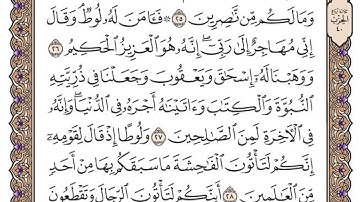 وَمَا لَكُم مِّن نَّٰصِرِينَ ٢٥ ۞ فَـَٔامَنَ لَهُۥ لُوطٌۘ وَقَالَ
إِنِّي مُهَاجِرٌ إِلَىٰ رَبِّيٓۖ إِنَّهُۥ هُوَ ٱلۡعَزِيزُ ٱلۡحَكِيمُ ٢٦
وَوَهَبۡنَا لَهُۥٓ إِسۡحَٰقَ وَيَعۡقُوبَ وَجَعَلۡنَا فِي ذُرِّيَّتِهِ
ٱلنُّبُوَّةَ وَٱلۡكِتَٰبَ وَءَاتَيۡنَٰهُ أَجۡرَهُۥ فِي ٱلدُّنۡيَاۖ وَإِنَّهُۥ
فِي ٱلۡأٓخِرَةِ لَمِنَ ٱلصَّٰلِحِينَ ٢٧ وَلُوطًا إِذۡ قَالَ لِقَوۡمِهِۦٓ
إِنَّكُمۡ لَتَأۡتُونَ ٱلۡفَٰحِشَةَ مَا سَبَقَكُم بِهَا مِنۡ أَحَدٖ
مِّنَ ٱلۡعَٰلَمِينَ ٢٨ أَئِنَّكُمۡ لَتَأۡتُونَ ٱلرِّجَالَ وَتَقۡطَعُونَ
الحزب
٤٠